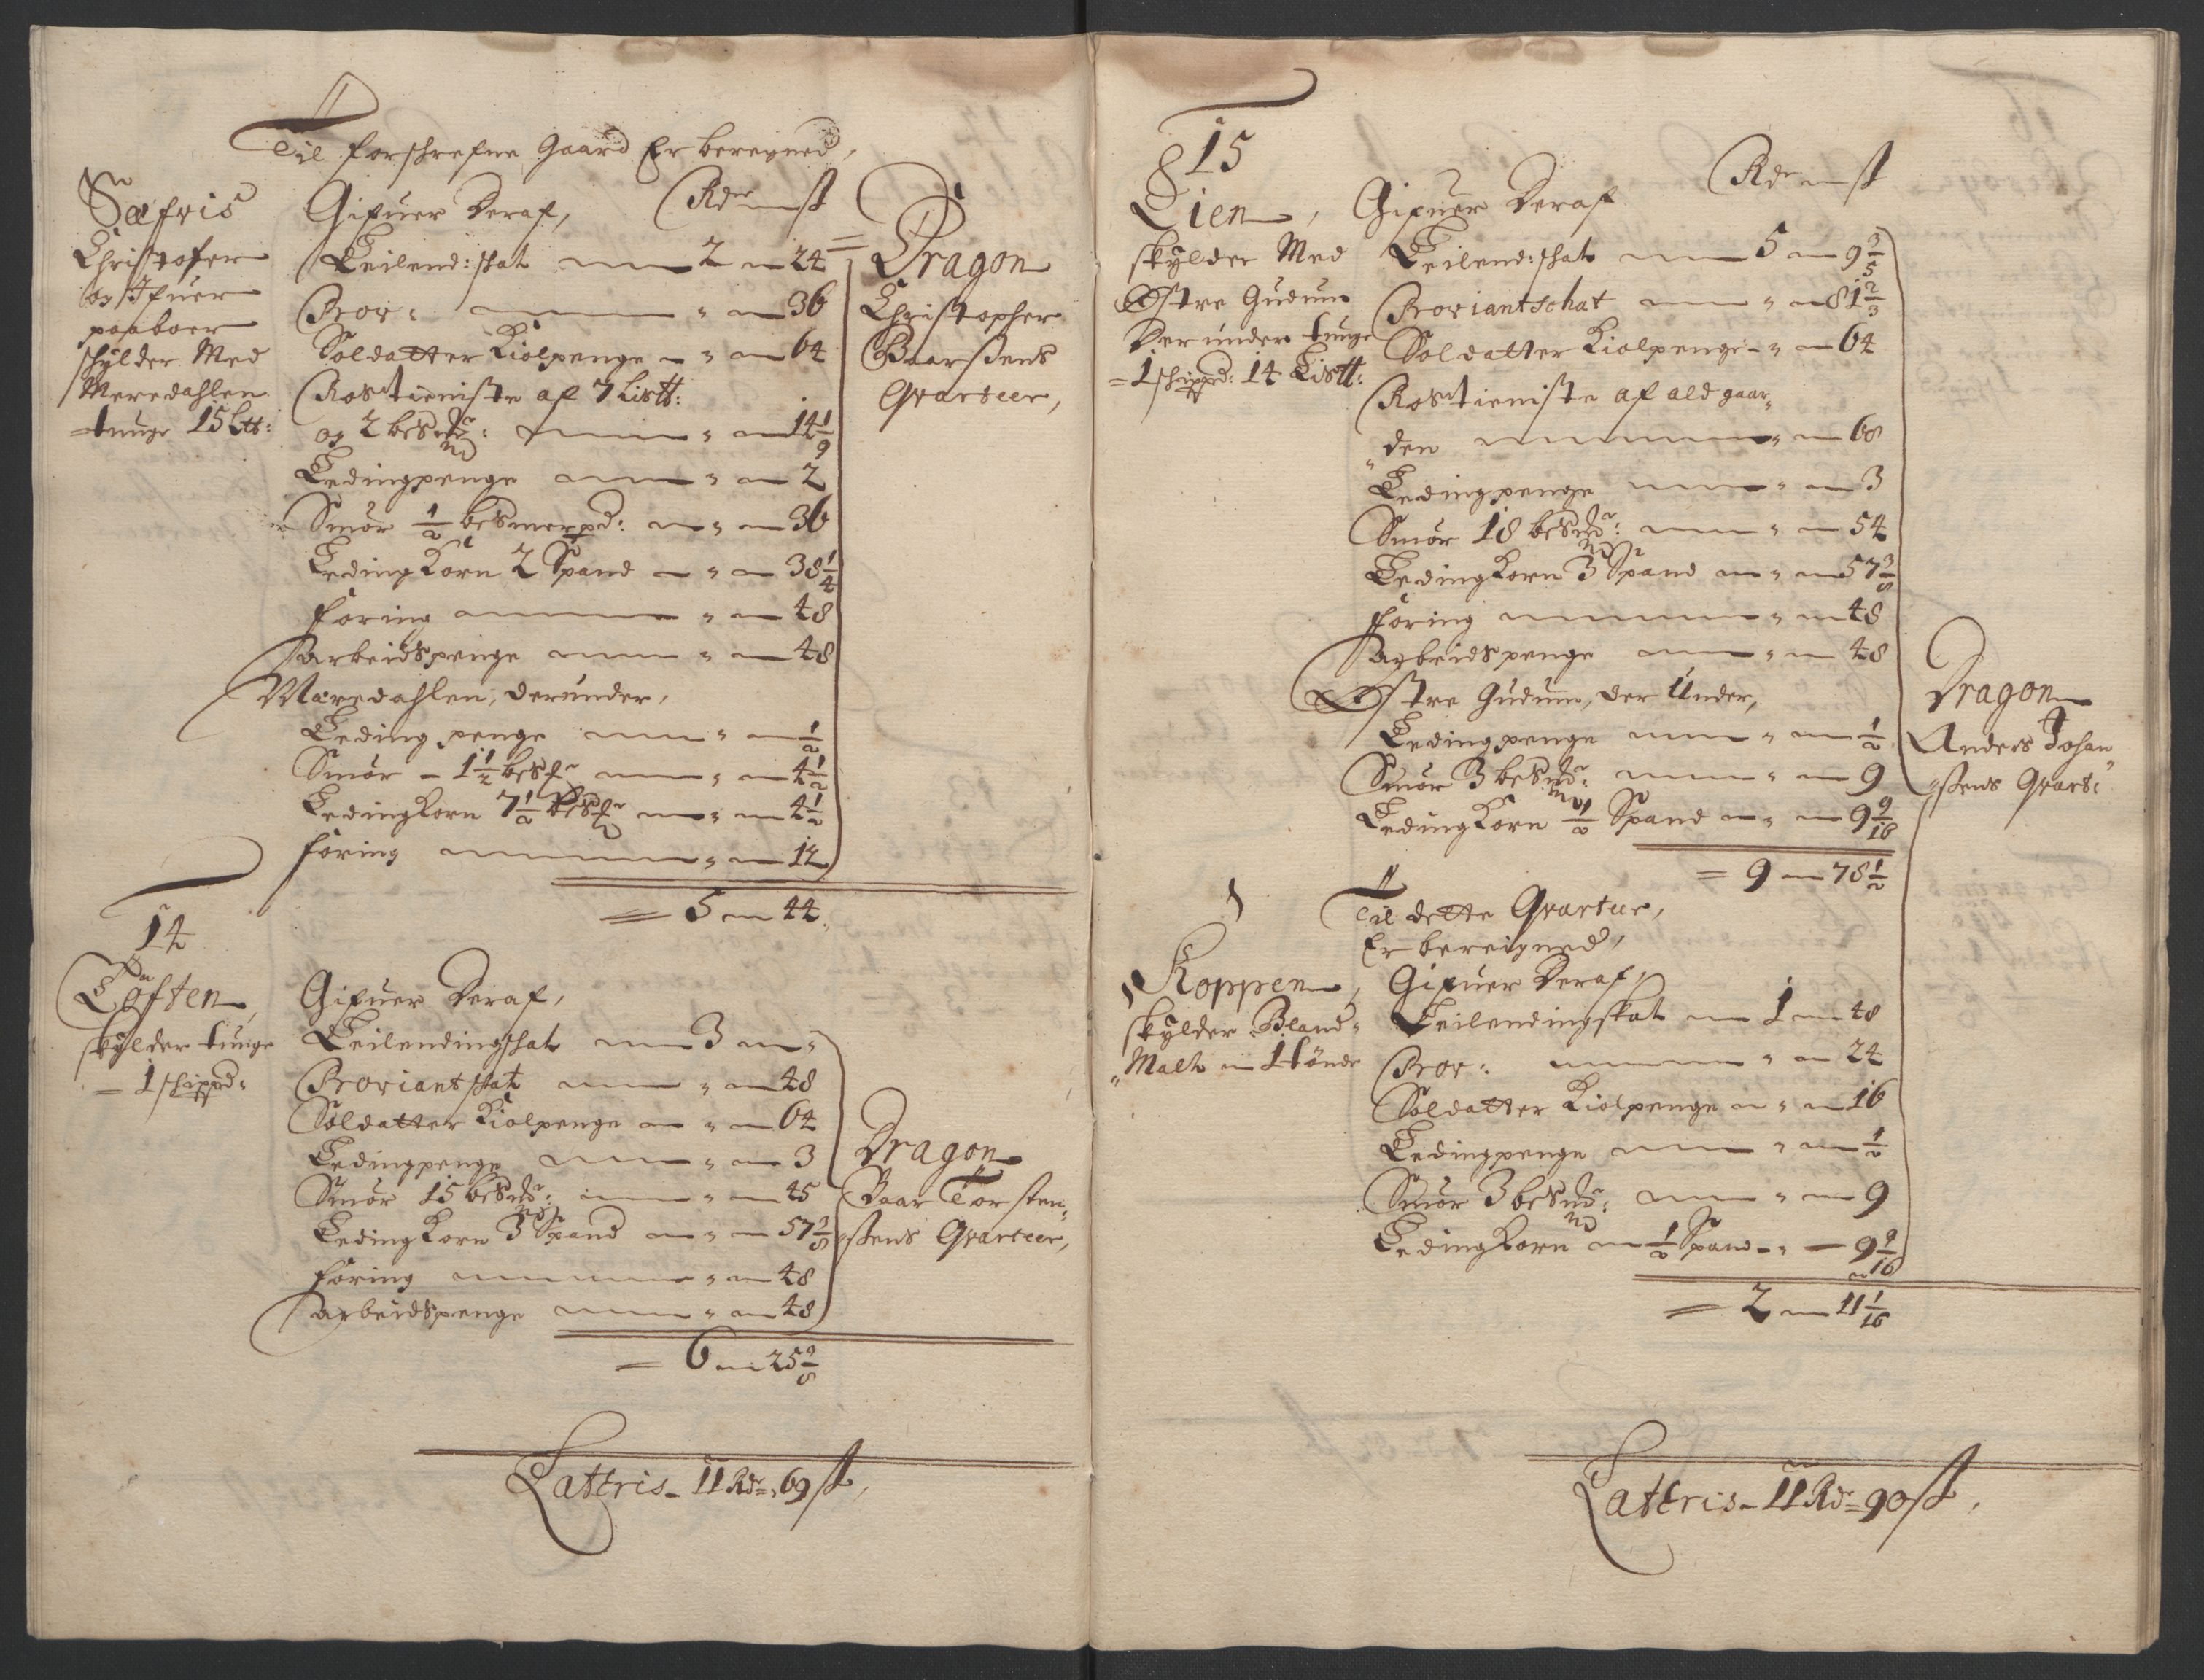 Til forschrefne Gaard Er beregned,
Sæfris
Christofer
og Ifuer
paaboer
schylder Med
Meredahlen
tunge 15 Ltt:
Gifuer Deraf, Rdr — st
Leilend: skat — 2 — 24
Prov: — " — 36
Soldatter Kiolpenge — " — 64
Rostieniste af 7 Listt:
og 2 besmdr: — " — 14 1/9
Ledingpenge — " — 2
Smör 1/2 besmerpd: — " — 36
Leding Korn 2 Spand — " — 38 1/4
föring — " — 48
Arbeidspenge — " — 48
Meredahlen, derunder,
Leding penge — " — 1/2
Smör — 1 1/2 besr — " — 4 1/2
Leding Korn 7 1/2 besr — " — 4 1/2
föring — " — 12
= 5 — 44.
Dragon
Christopher
Baarsens
Qvarteer,
14
Töften,
skylder tunge
— 1 schippd:
Gifuer Deraf,
Leilendingschat — 3 — "
Proviantskat — " — 48
Soldatter Kiolpenge — " — 64
Ledingpenge — " — 3
Smör 15 besmdr: — " — 45
Leding Korn 3 Spand — " — 57 3/8
föring — " — 48
Arbeidspenge — " — 48
= 6 — 25 3/8
Dragon
Baar Torsten-
sens Qvarteer,
Latteris — 11 Rdr — 69 st,
15
Lien,
skylder Med
Østre Gudum
Derunder tunge
= 1 schippd: 14 Listt:
Gifuer Deraf Rdr — st
Leilend: schat — 5 — 9 3/5
Proviantschat — " — 81 2/3
Soldatter Kiolpenge — " — 64
Rostieniste af ald gaar-
den — " — 68
Ledingpenge — " — 3
Smör 18 besmdr: — " — 54
Leding Korn 3 Spand — " — 57 3/8
föring — " — 48
Arbeidspenge — " — 48
Østre Gudum, der Under,
Ledingpenge — " — 1/2
Smör 3 besmdr: — " — 9
Leding Korn 1/2 Spand — " — 9 9/16
= 9 — 78 1/2
Dragon
Anders Johan
sens Qvart:
Til dette Qvarteer,
Er bereigned,
Koppen,
skylder Bland-
Malt — 1 tönde
Gifuer Deraf,
Leilendingskat — 1 — 48
Prov: — " — 24
Soldatter Kiolpenge — " — 16
Ledingpenge — " — 1/2
Smör 3 besmdr: — " — 9
Leding Korn — 1/2 Spand — " — 9 9/16
= 2 — 11 1/16
Latteris — 11 Rdr — 90 st,